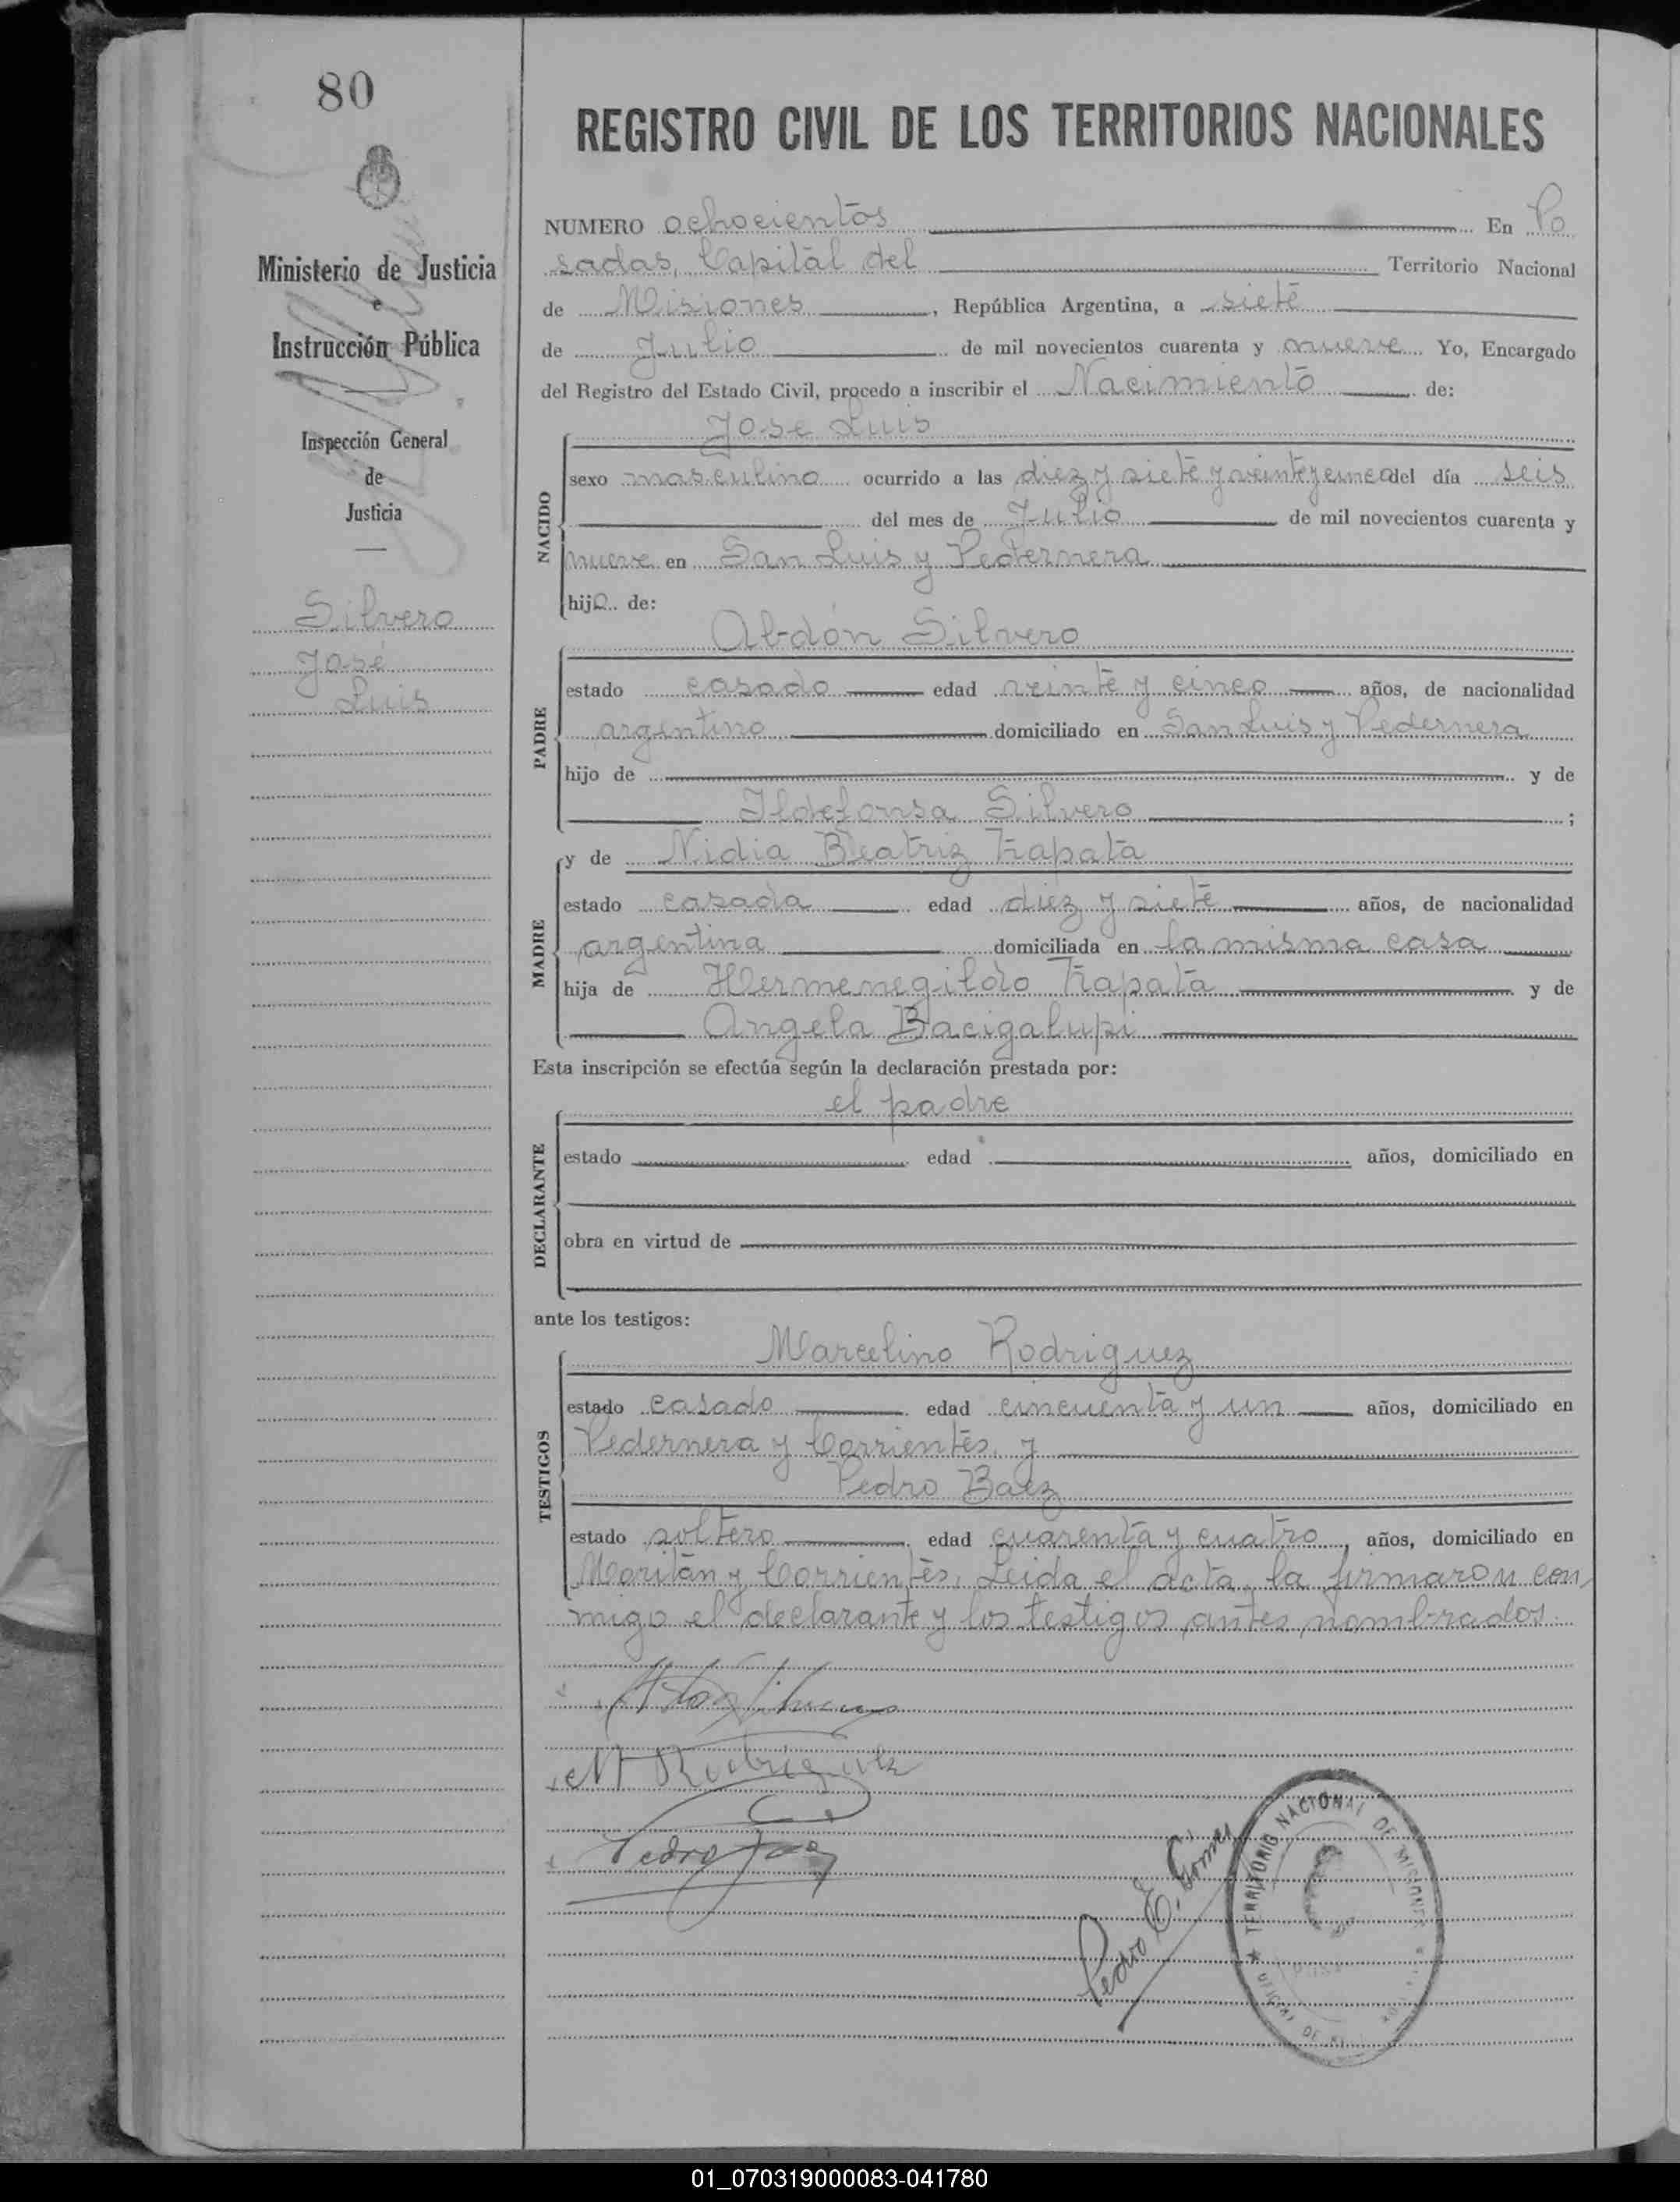 80
Ministerio de Justicia
e
Instrucción Pública
Inspección General
de
Justicia
Silvero
José
Luis
REGISTRO CIVIL DE LOS TERRITORIOS NACIONALES
NUMERO ochocientos En Po
sadas, Capital del Territorio Nacional
de Misiones, República Argentina, a siete
de Julio de mil novecientos cuarenta y nueve Yo, Encargado
del Registro del Estado Civil, procedo a inscribir el Nacimiento de:
Jose Luis
NACIDO
sexo masculino ocurrido a las diez y siete y veinte y cinco del día seis
del mes de Julio de mil novecientos cuarenta y
nueve en San Luis y Pedernera
hijo de:
Abdón Silvero
PADRE
estado casado edad veinte y cinco años, de nacionalidad
argentino domiciliado en San Luis y Pedernera
hijo de y de
Ildefonsa Silvero ;
MADRE
y de Nidia Beatriz Zapata
estado casada edad diez y siete años, de nacionalidad
argentina domiciliada en la misma casa
hija de Hermenegildo Zapata y de
Angela Bacigalupi
Esta inscripción se efectúa según la declaración prestada por:
el padre
DECLARANTE
estado edad años, domiciliado en
obra en virtud de
ante los testigos:
Marcelino Rodriguez
TESTIGOS
estado casado edad cincuenta y un años, domiciliado en
Pedernera y Corrientes, y
Pedro Baez
estado soltero edad cuarenta y cuatro, años, domiciliado en
Moritán y Corrientes, Leida el acta, la firmaron con
migo el declarante y los testigos antes nombrados.
M Rodriguez
Pedro Baez
Pedro E. Gómez
TERRITORIO NACIONAL DE MISIONES
01_070319000083-041780